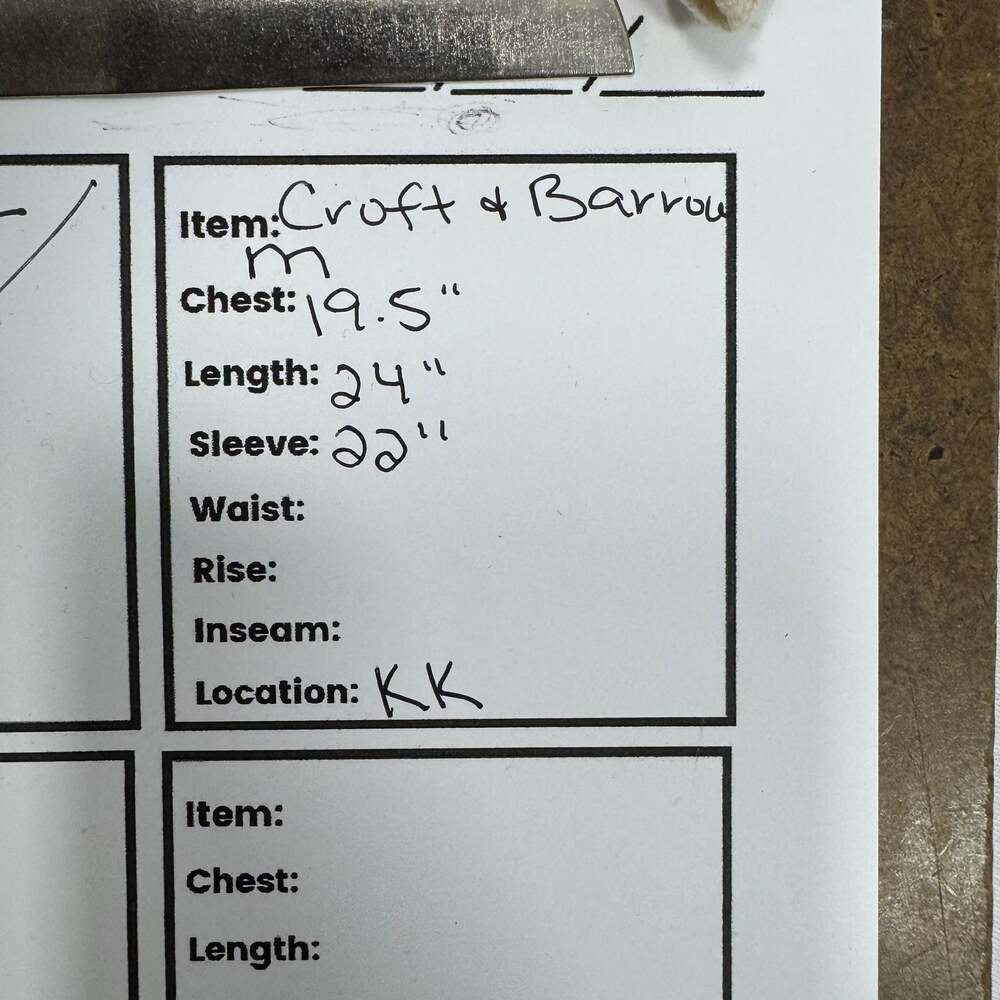 Item: Croft & Barrow
m
Chest: 19.5"
Length: 24"
Sleeve: 22"
Waist:
Rise:
Inseam:
Location: KK
Item:
Chest:
Length: